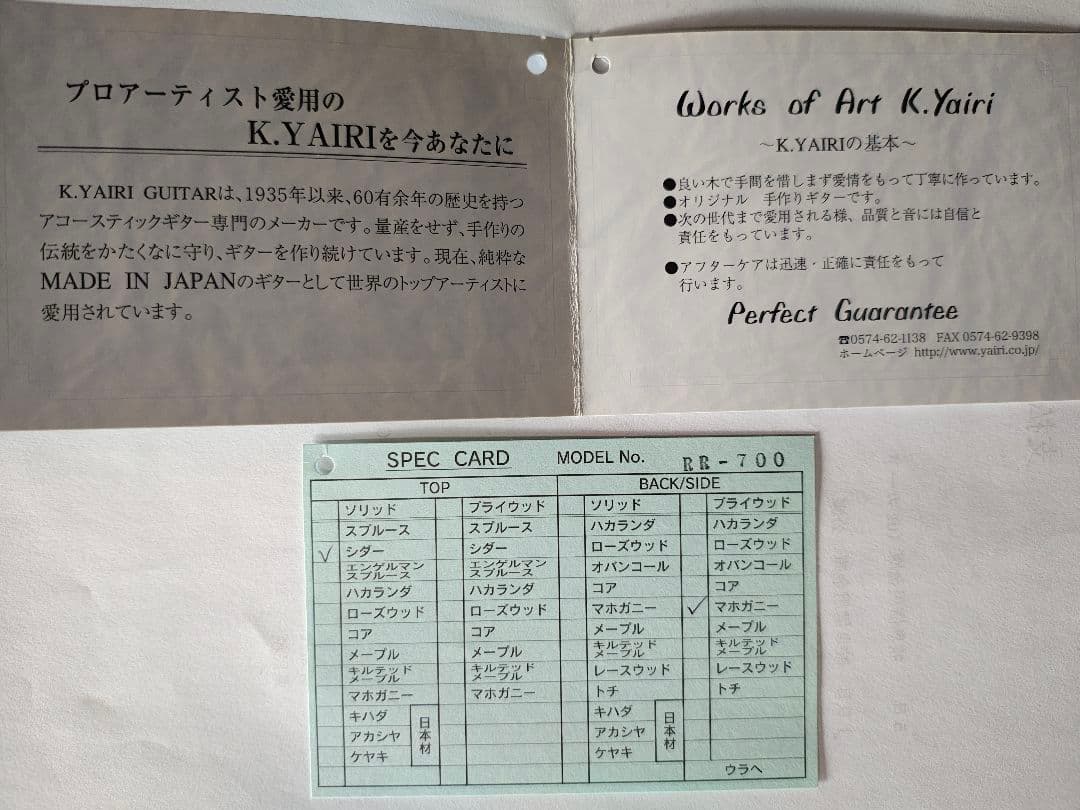 プロアーティスト愛用の
K.YAIRIを今あなたに
K.YAIRI GUITARは、1935年以来、60有余年の歴史を持つ
アコースティックギター専門のメーカーです。量産をせず、手作りの
伝統をかたくなに守り、ギターを作り続けています。現在、純粋な
MADE IN JAPANのギターとして世界のトップアーティストに
愛用されています。
Works of Art K.Yairi
～K.YAIRIの基本～
●良い木で手間を惜しまず愛情をもって丁寧に作っています。
●オリジナル 手作りギターです。
●次の世代まで愛用される様、品質と音には自信と
責任をもっています。
●アフターケアは迅速・正確に責任をもって
行います。
Perfect Guarantee
☎0574-62-1138 FAX 0574-62-9398
ホームページ http://www.yairi.co.jp/
SPEC CARD MODEL No. RR-700
TOP BACK/SIDE
ソリッド プライウッド ソリッド プライウッド
スプルース スプルース ハカランダ ハカランダ
✓ シダー シダー ローズウッド ローズウッド
エンゲルマンスプルース エンゲルマンスプルース オバンコール オバンコール
ハカランダ ハカランダ コア コア
ローズウッド ローズウッド マホガニー ✓ マホガニー
コア コア メープル メープル
メープル メープル キルテッドメープル キルテッドメープル
キルテッドメープル キルテッドメープル レースウッド レースウッド
マホガニー マホガニー トチ トチ
キハダ 日本材 キハダ 日本材
アカシヤ アカシヤ
ケヤキ ケヤキ
ウラへ